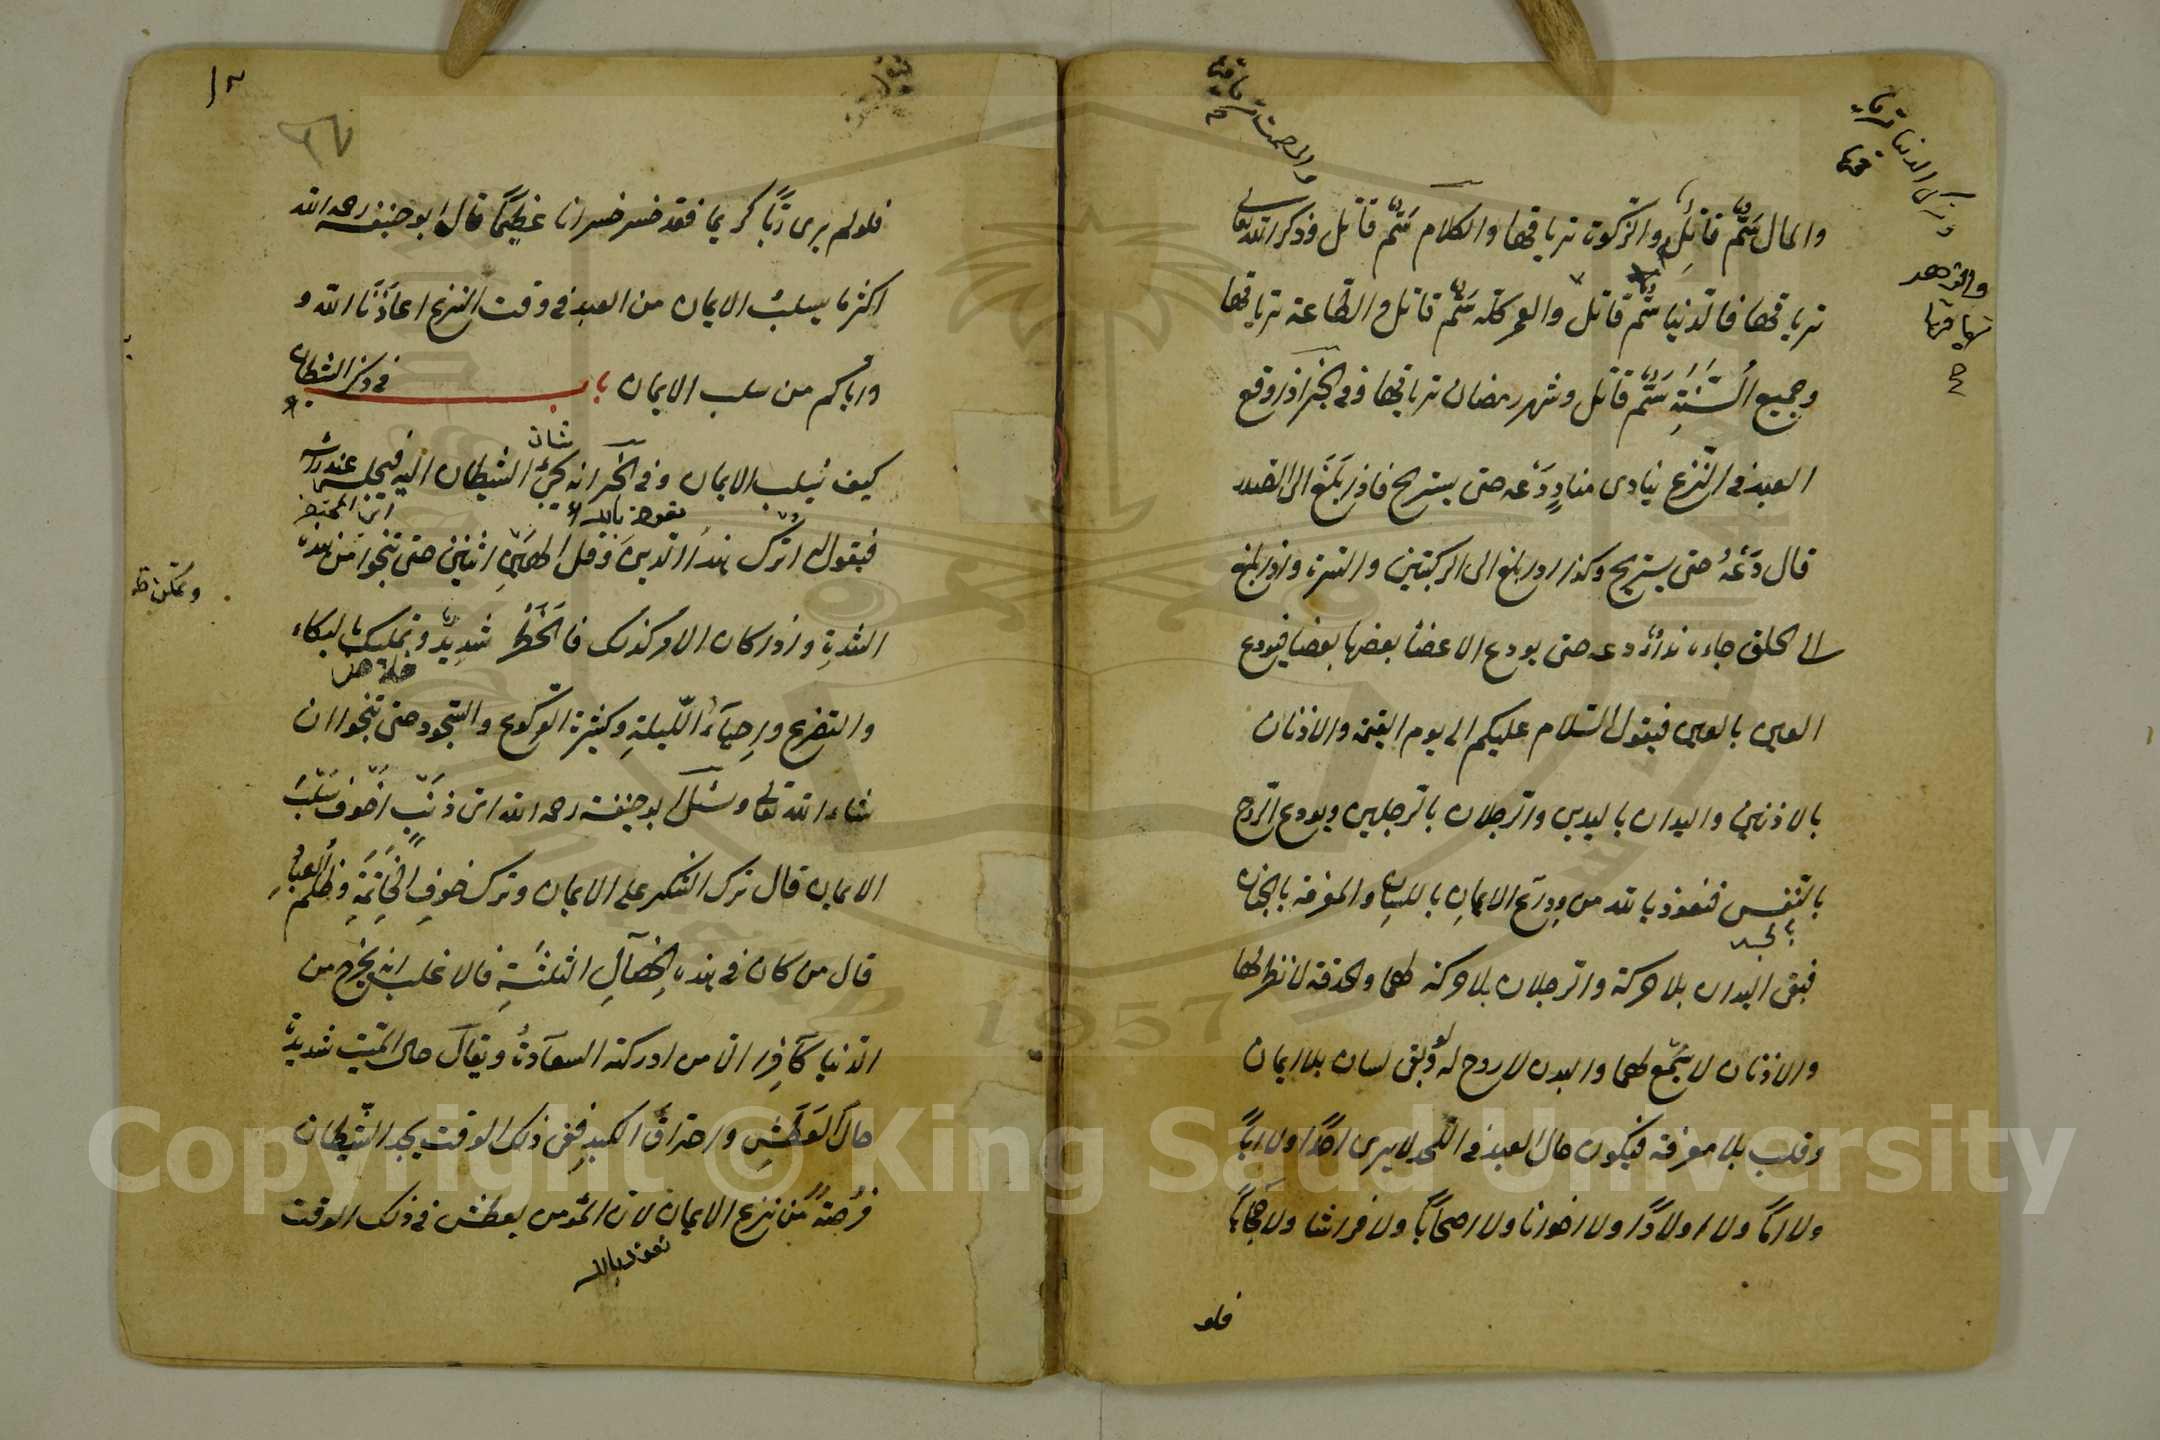 والمال سَمٌّ قاتِلٌ والزكوة ترياقها والكلام سَمٌّ قاتل وذكر الله تعالى
ترياقها فالدنيا سَمٌّ قاتل والعمر كله سَمٌّ قاتل والطاعة ترياقها
وجميع السَّنَةِ سَمٌّ قاتل وشهر رمضان ترياقها وفى الخبر اذا وقع
العبد فى النَّزع ينادى منادٍ دَعْه حتى يستريح فاذا بَلَغَ الى الصدر
قال دَعْهُ حتى يستريح وكذا اذا بلغ الى الركبتين والسرة واذا بلغ
الى الحلق جاء نداءٌ دعه حتى يودع الاعضأ بعضها بعضا فيودع
العين بالعين فيقول السّلام عليكم الى يوم القيمة والاذنان
بالاذنين واليدان باليدين والرجلان بالرجلين ويودع الروح
بالنَّفس فنعوذ بالله من وداع الايمانِ باللسان والمعرفة بالجنان
بالجسد
فبقى اليدان بلا حركة والرجلان بلا حركة لهما والحدقة لا نظر لها
والاذنان لا سَمْعَ لهما والبدن لا روح له ولو بقى لسان بلا ايمان
وقلب بلا معرفة فيكون حال العبد فى اللَّحد لا يرى احدًا ولا ابًا
ولا امًّا ولا اولادًا ولا اخوانا ولا اصحابًا ولا فراشا ولا حجابًا
فلو
والصمت ترياقها
وترك الدنيا ترياقها
والزهد
ترياقها
صح
١٢
٦٧
فلو لم يرى ربًّا كريما فقد خسر خسرانا عظيمًا قال ابو حنيفة رحمه الله
اكثر ما يسلب الايمان من العبد فى وقت النزع اعاذَنَا الله و
واياكم من سلب الايمان باب فى ذكر الشيطان
كيف يُسلب الايمان وفى الخبر انه يجئ الشيطان اليه فيجلس عند رأسه
نعوذ بالله
فيقول له اترك هذا الدينَ وقل الهين اثنين حتى تنجوا من هذه
الشدةِ واذا كان الامر كذلك فالخَطَرُ شديدٌ وعليك بالبكاء
والتضرع واحياءِ اللَّيلةِ وكثرة الركوع والسّجود حتى تنجوا ان
شاء الله تعالى وسُئل ابو حنيفة رحمه الله اىّ ذنبٍ اَخوف بسلب
الايمان قال ترك الشكر على الايمان وترك خوفِ الخاتِمَةِ وظلم العباد
قال من كان فى هذه الخصالِ الثلثةِ فالاغلب انه يخرج من
الدنيا كآفِرا الّا من ادركته السعآدةُ ويقال حال الميّت شديدة
حال العَطَشِ واحتراقُ الكبدِ ففى ذلك الوقت يجد الشّيطان
فُرْصَةً من نزع الايمان لان المؤمن يعطش فى ذلك الوقت
نعوذ بالله